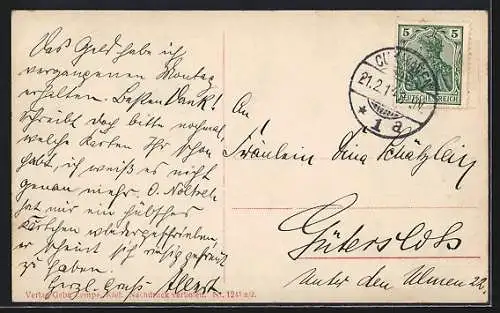 Das Geld habe ich
vergangenen Montag
erhalten. Besten Dank!
schreibt doch bitte nochmal,
welche Karten Ihr schon
habt, ich weiß es nicht
genau mehr. O.
hat mir ein hübsches
Kärtchen wiedergeschrieben,
er scheint sich riesig gefreut
zu haben.
Herzl. Gruß Albert
Verlag Gebr. Lempe, Kiel. Nachdruck verboten. Nr. 1241
5 5
DEUTSCHES REICH
CUXHAVEN
21.2.1
* 1 a
An
Fräulein Lina Schätzlein
Gütersloh
Unter den Ulmen 22.